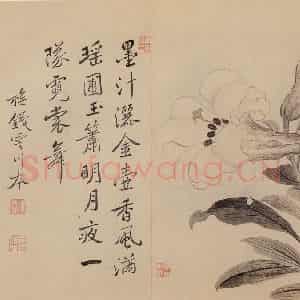 墨汁灑金壺香風滿
瑤圃玉簫明月夜一
隊霓裳舞
擬錢雪川本
Shufawang.cn